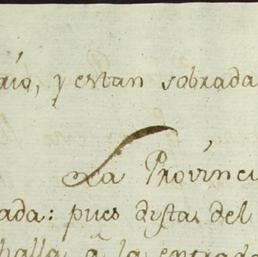 rio, y estan sobrada
La Provinci
ada: pues dista del
halla à la entrada